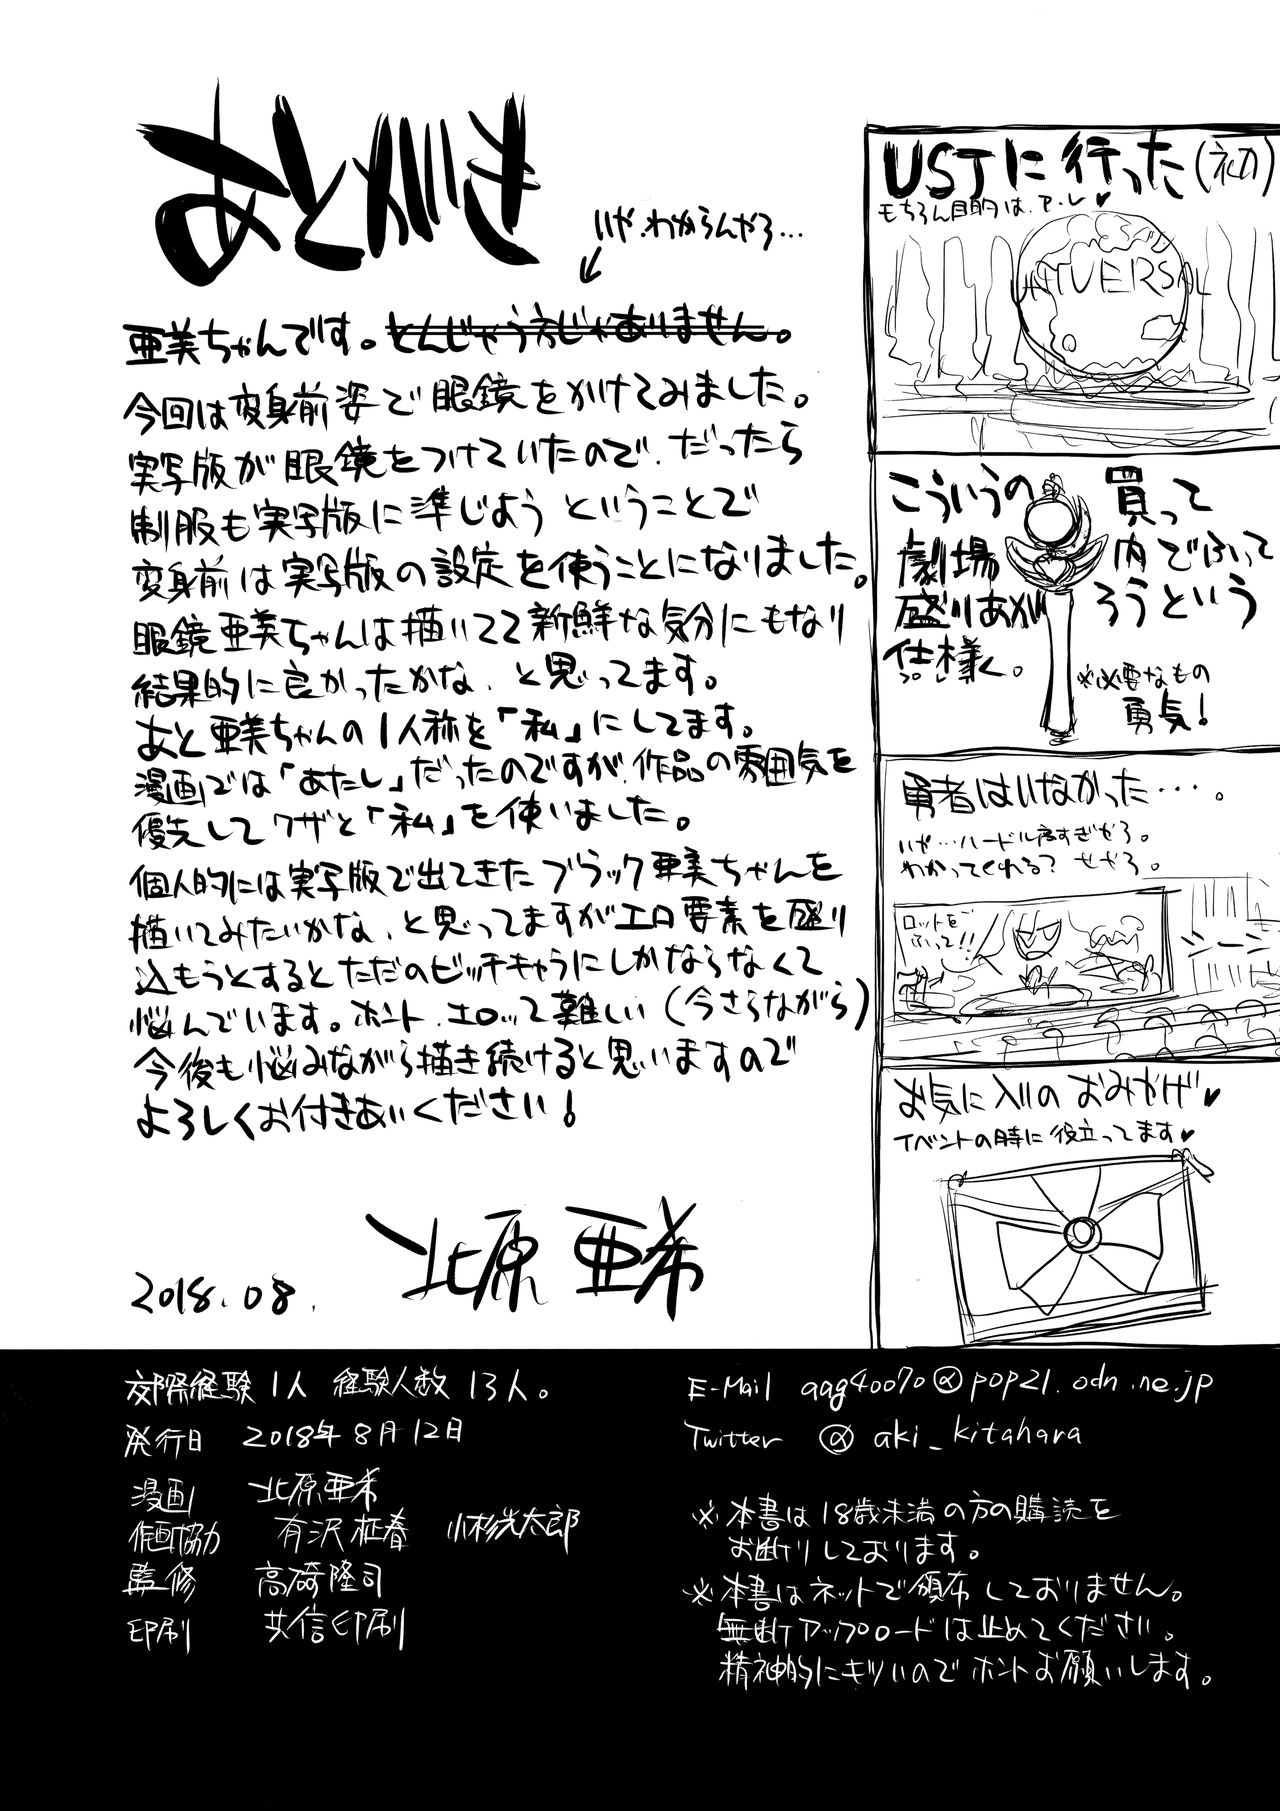 あとがき
いや、わからんやろ…
亜美ちゃんです。とんじゃう方じゃありません。
今回は変身前姿で眼鏡をかけてみました。
実写版が眼鏡をつけていたので、だったら
制服も実写版に準じよう ということで
変身前は実写版の設定を使うことになりました。
眼鏡亜美ちゃんは描いてて新鮮な気分にもなり
結果的に良かったかな、と思ってます。
あと亜美ちゃんの1人称を「私」にしてます。
漫画では「あたし」だったのですが、作品の雰囲気を
優先してワザと「私」を使いました。
個人的には実写版で出てきたブラック亜美ちゃんを
描いてみたいかな、と思ってますがエロ要素を盛り
込もうとするとただのビッチキャラにしかならなくて
悩んでいます。ホント、エロって難しい(今さらながら)
今後も悩みながら描き続けると思いますので
よろしくお付きあいください!
2018.08.
北原亜希
USJに行った(初)
もちろん目的は、ア・レ♥
UNIVERSAL
こういうの買って
劇場内でふって
盛りあがろうという
仕様く。
※必要なもの
勇気!
勇者はいなかった・・・。
いや…ハードル高すぎやろ。
わかってくれる?せやろ。
ロッドを
ふって!!
シーン
お気に入りのおみやげ♥
イベントの時に役立ってます♥
交際経験1人 経験人数13人。
発行日 2018年8月12日
漫画 北原亜希
作画協力 有沢柾春 小杉光太郎
監修 高碕隆司
印刷 共信印刷
E-Mail aag40070@pop21.odn.ne.jp
Twitter @aki_kitahara
※本書は18歳未満の方の購読を
お断りしております。
※本書はネットで頒布しておりません。
無断アップロードは止めてください。
精神的にキツいのでホントお願いします。